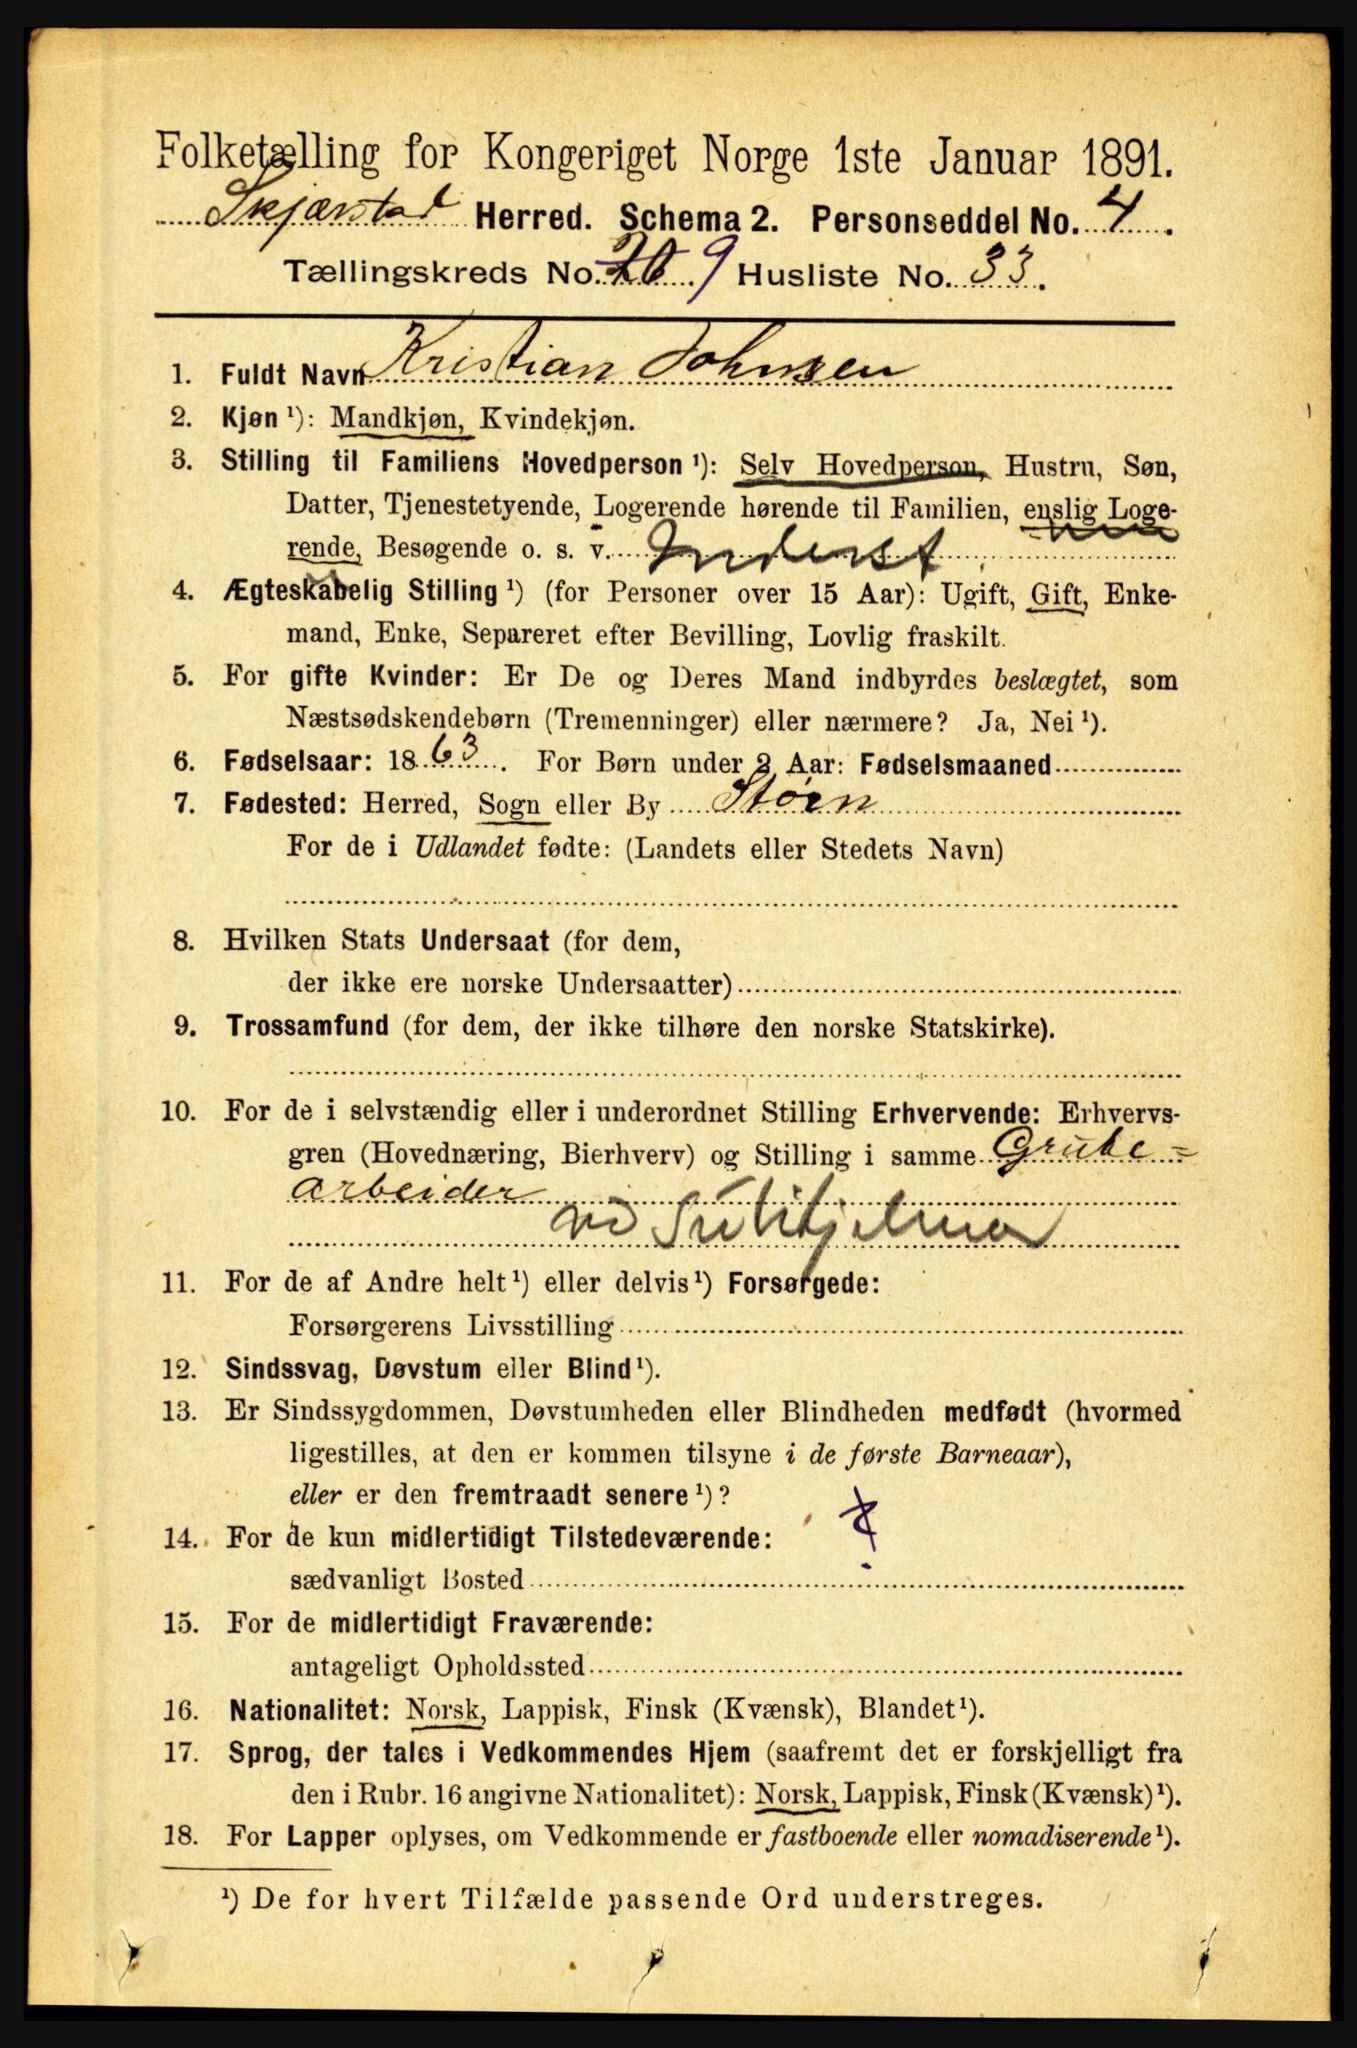 Folketælling for Kongeriget Norge 1ste Januar 1891.
Skjærstad Herred. Schema 2. Personseddel No. 4.
Tællingskreds No. 9 Husliste No. 33.
1. Fuldt Navn Kristian Johnsen
2. Kjøn ¹): Mandkjøn, Kvindekjøn.
3. Stilling til Familiens Hovedperson ¹): Selv Hovedperson, Hustru, Søn,
Datter, Tjenestetyende, Logerende hørende til Familien, enslig Loge-
rende, Besøgende o. s. v. Inderst
4. Ægteskabelig Stilling ¹) (for Personer over 15 Aar): Ugift, Gift, Enke-
mand, Enke, Separeret efter Bevilling, Lovlig fraskilt.
5. For gifte Kvinder: Er De og Deres Mand indbyrdes beslægtet, som
Næstsødskendebørn (Tremenninger) eller nærmere? Ja, Nei ¹).
6. Fødselsaar: 1863. For Børn under 2 Aar: Fødselsmaaned
7. Fødested: Herred, Sogn eller By Støren
For de i Udlandet fødte: (Landets eller Stedets Navn)
8. Hvilken Stats Undersaat (for dem,
der ikke ere norske Undersaatter)
9. Trossamfund (for dem, der ikke tilhøre den norske Statskirke).
10. For de i selvstændig eller i underordnet Stilling Erhvervende: Erhvervs-
gren (Hovednæring, Bierhverv) og Stilling i samme Grube=
arbeider
ved Sulitjelma
11. For de af Andre helt ¹) eller delvis ¹) Forsørgede:
Forsørgerens Livsstilling
12. Sindssvag, Døvstum eller Blind ¹).
13. Er Sindssygdommen, Døvstumheden eller Blindheden medfødt (hvormed
ligestilles, at den er kommen tilsyne i de første Barneaar),
eller er den fremtraadt senere ¹)?
14. For de kun midlertidigt Tilstedeværende:
sædvanligt Bosted
15. For de midlertidigt Fraværende:
antageligt Opholdssted
16. Nationalitet: Norsk, Lappisk, Finsk (Kvænsk), Blandet ¹).
17. Sprog, der tales i Vedkommendes Hjem (saafremt det er forskjelligt fra
den i Rubr. 16 angivne Nationalitet): Norsk, Lappisk, Finsk (Kvænsk) ¹).
18. For Lapper oplyses, om Vedkommende er fastboende eller nomadiserende ¹).
¹) De for hvert Tilfælde passende Ord understreges.